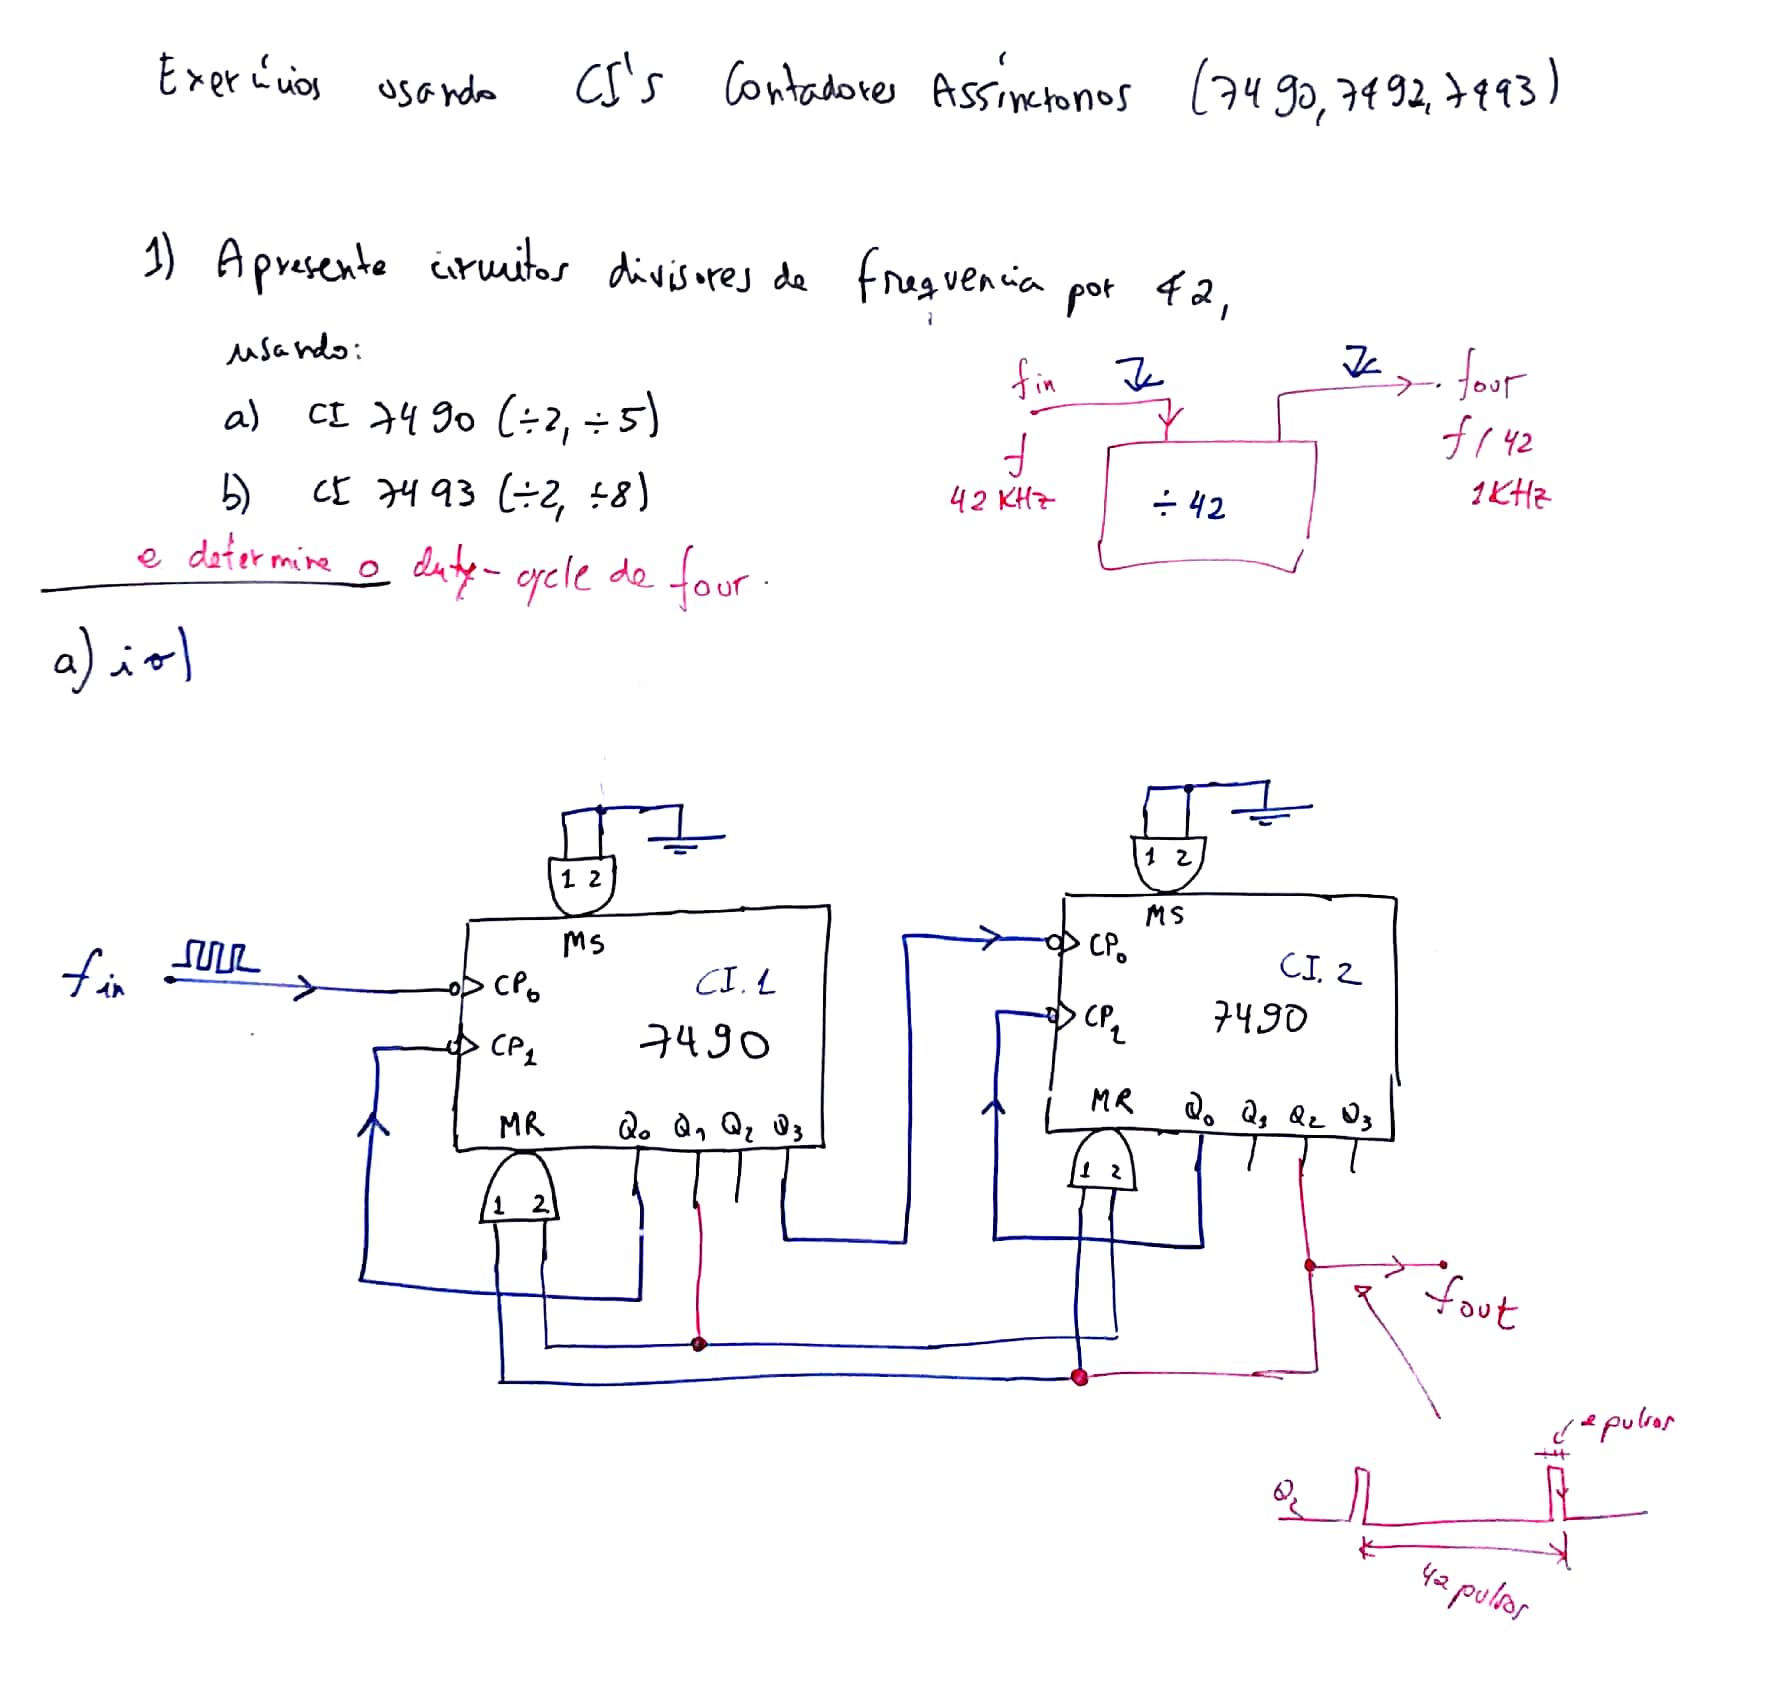 Exercícios usando CI's Contadores Assíncronos (7490, 7492, 7493)
1) Apresente circuitos divisores de frequencia por 42,
usando:
a) CI 7490 (÷2, ÷5)
b) CI 7493 (÷2, ÷8)
e determine o duty-cycle de fout.
fin
f
42 KHz
÷ 42
fout
f/42
1KHz
a)
1 2
MS
fin
CP0
CP1
CI.1
7490
MR
Q0 Q1 Q2 Q3
1 2
1 2
MS
CP0
CP1
CI.2
7490
MR
Q0 Q1 Q2 Q3
1 2
fout
2 pulsos
Q2
42 pulsos